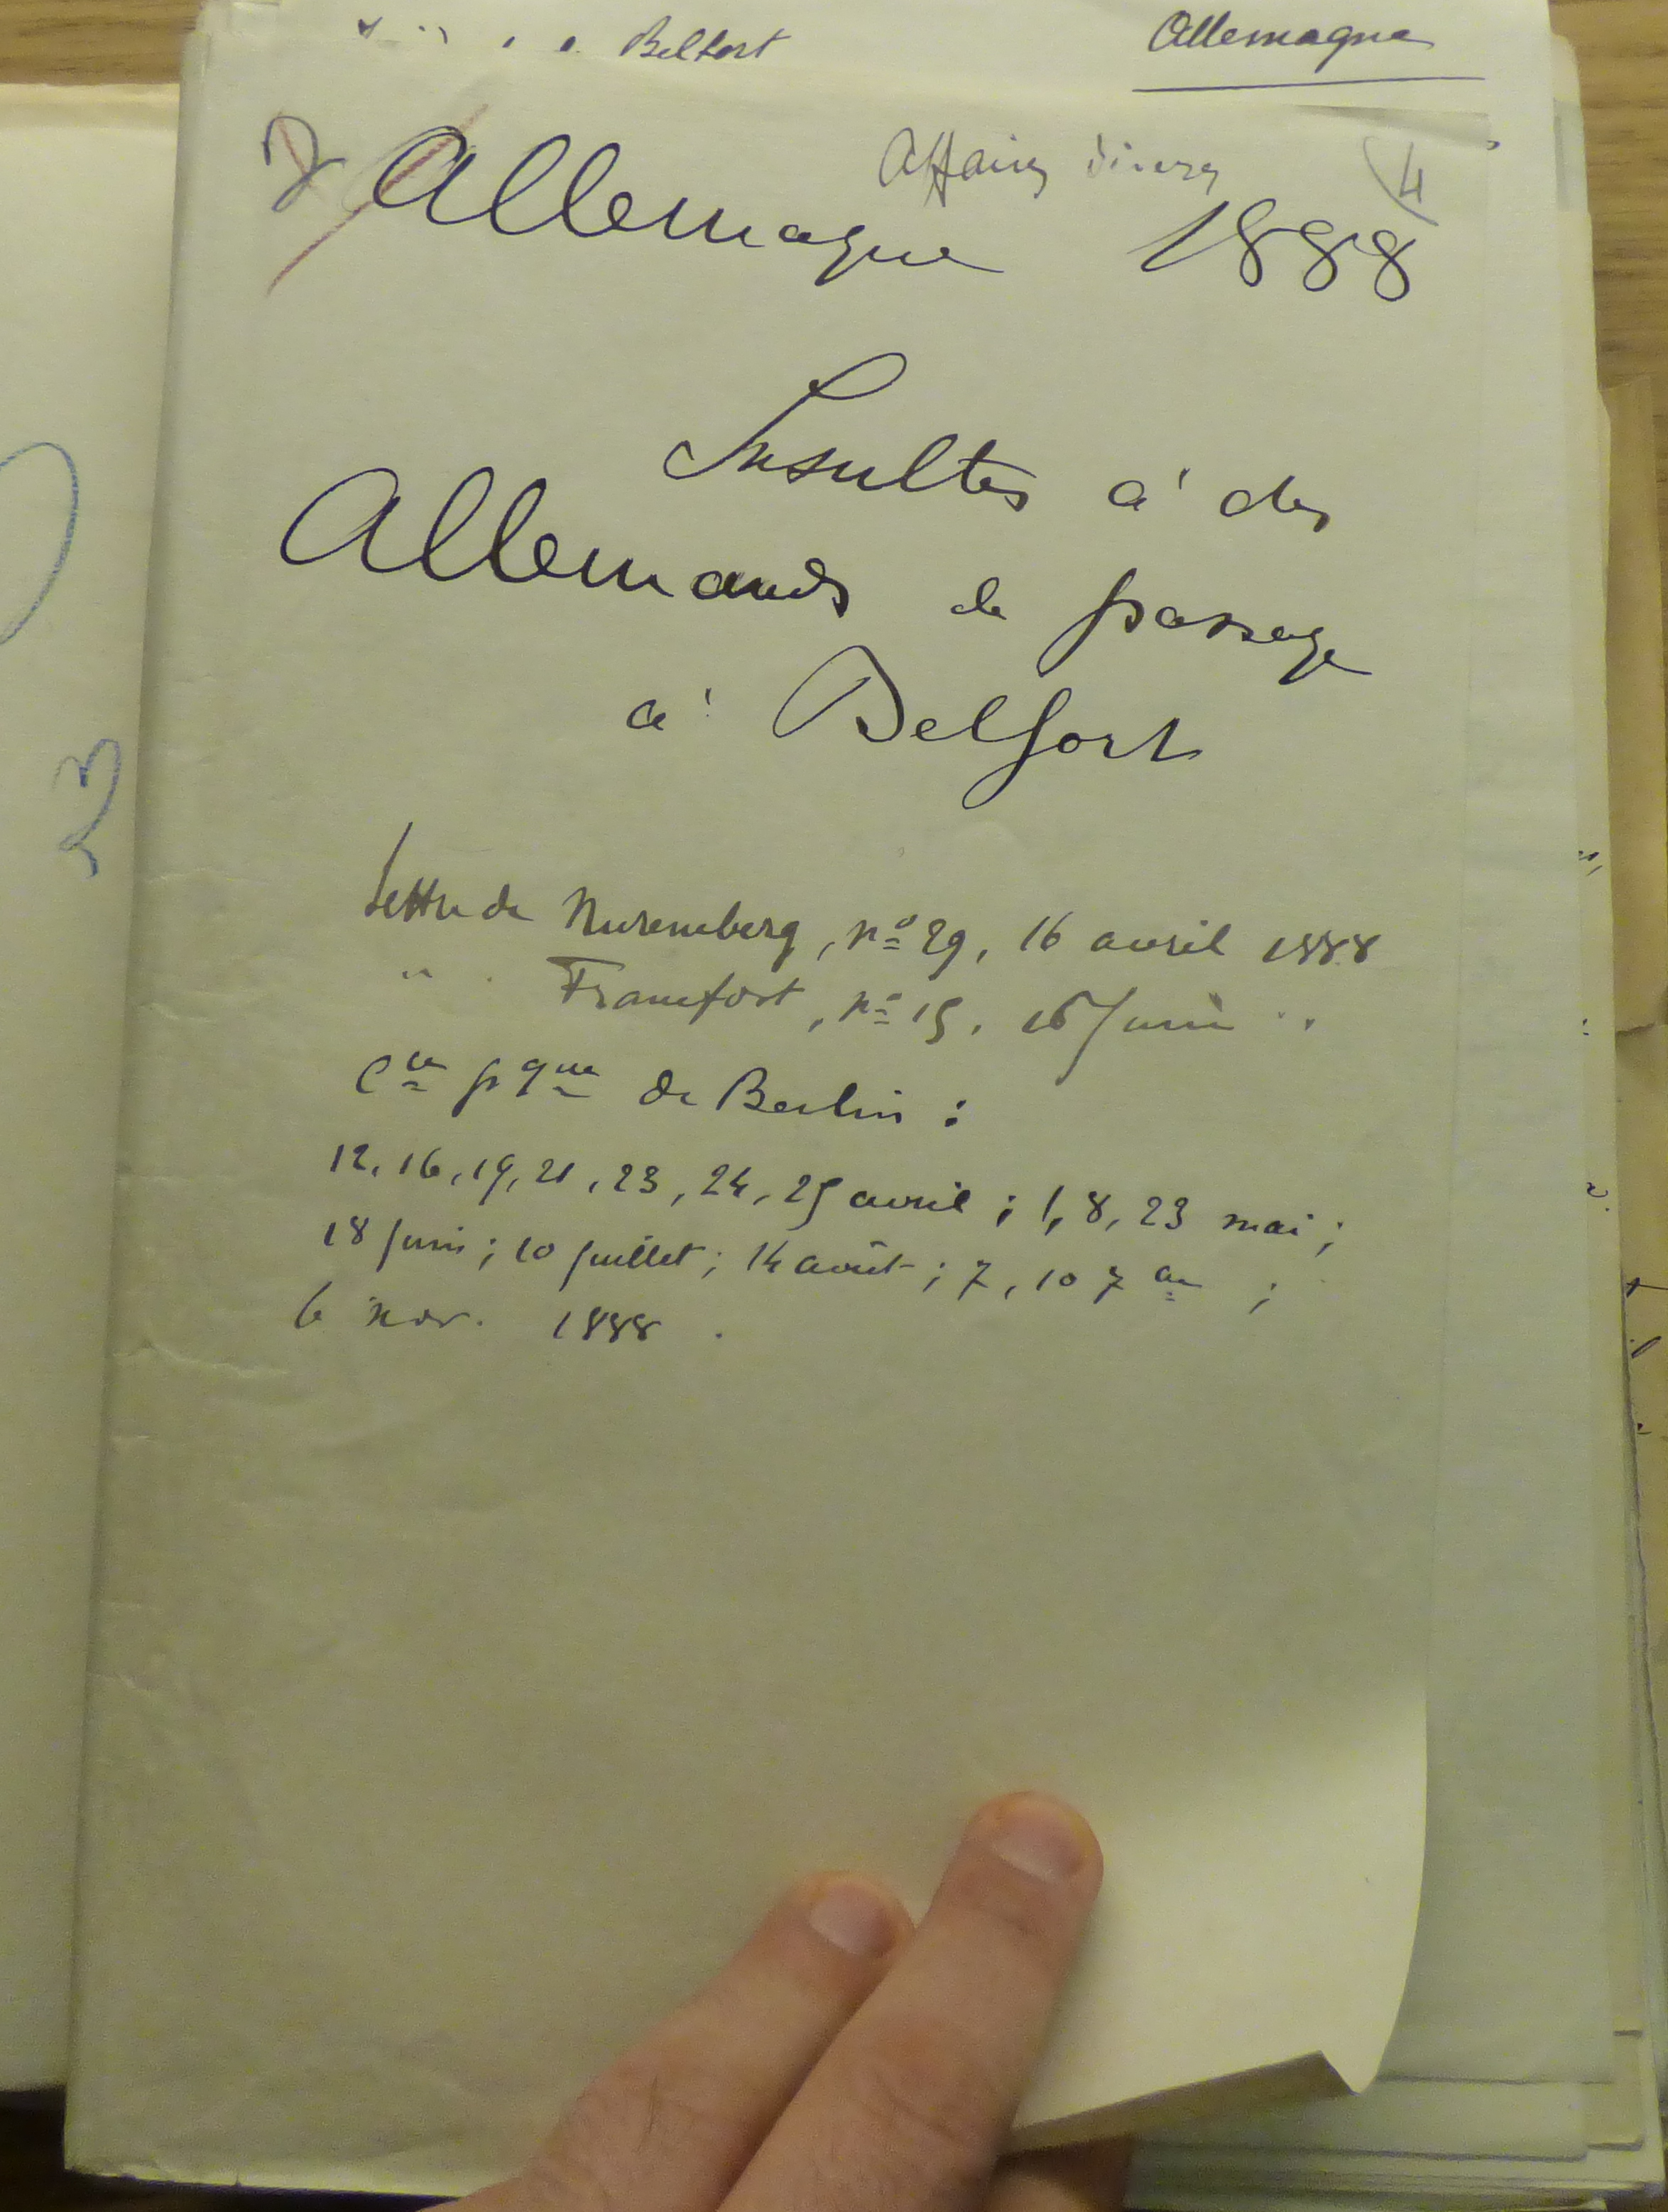 " " " " Belfort
Allemagne
Affaires diverses
4
Allemagne 1888
Insultes à des
Allemands de passage
à Belfort
Lettre de Nuremberg, nº 29, 16 avril 1888
" . Francfort, nº 15, 16 juin "
Cce pque de Berlin :
12, 16, 19, 21, 23, 24, 25 avril ; 1, 8, 23 mai ;
18 juin ; 10 juillet ; 14 août ; 7, 10 7bre ;
6 nov. 1888 .
23